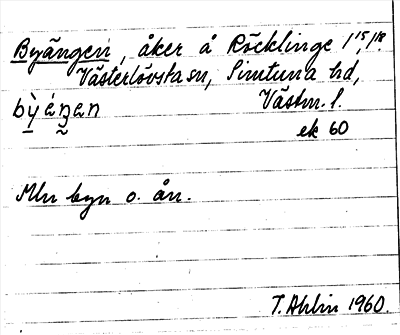 Byängen, åker å Röcklinge 1¹⁵, 1¹⁸.
Västerlövsta sn, Simtuna hd,
Västm. l.
bỳ áŋen
ek 60
Mln byn o. ån.
T. Ahlin 1960.